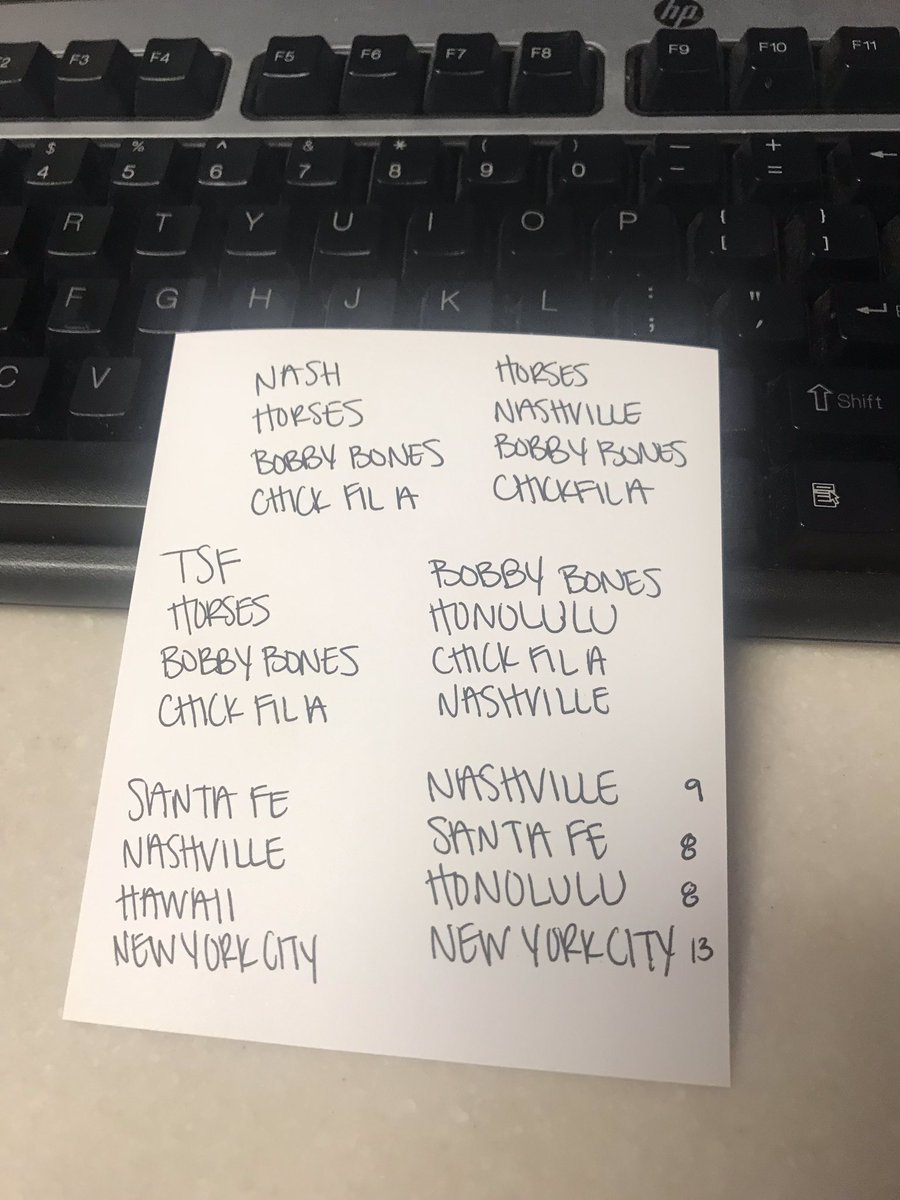 hp
F3 F4 F5 F6 F7 F8 F9 F10 F11
$ % ^ & * ( ) — +
4 5 6 7 8 9 0 - =
R T Y U I O P { }
[ ]
F G H J K L : "
; '
C V
Shift
NASH
HORSES
BOBBY BONES
CHICK FIL A
HORSES
NASHVILLE
BOBBY BONES
CHICKFILA
TSF
HORSES
BOBBY BONES
CHICK FIL A
BOBBY BONES
HONOLULU
CHICK FIL A
NASHVILLE
SANTA FE
NASHVILLE
HAWAII
NEW YORK CITY
NASHVILLE 9
SANTA FE 8
HONOLULU 8
NEW YORK CITY 13